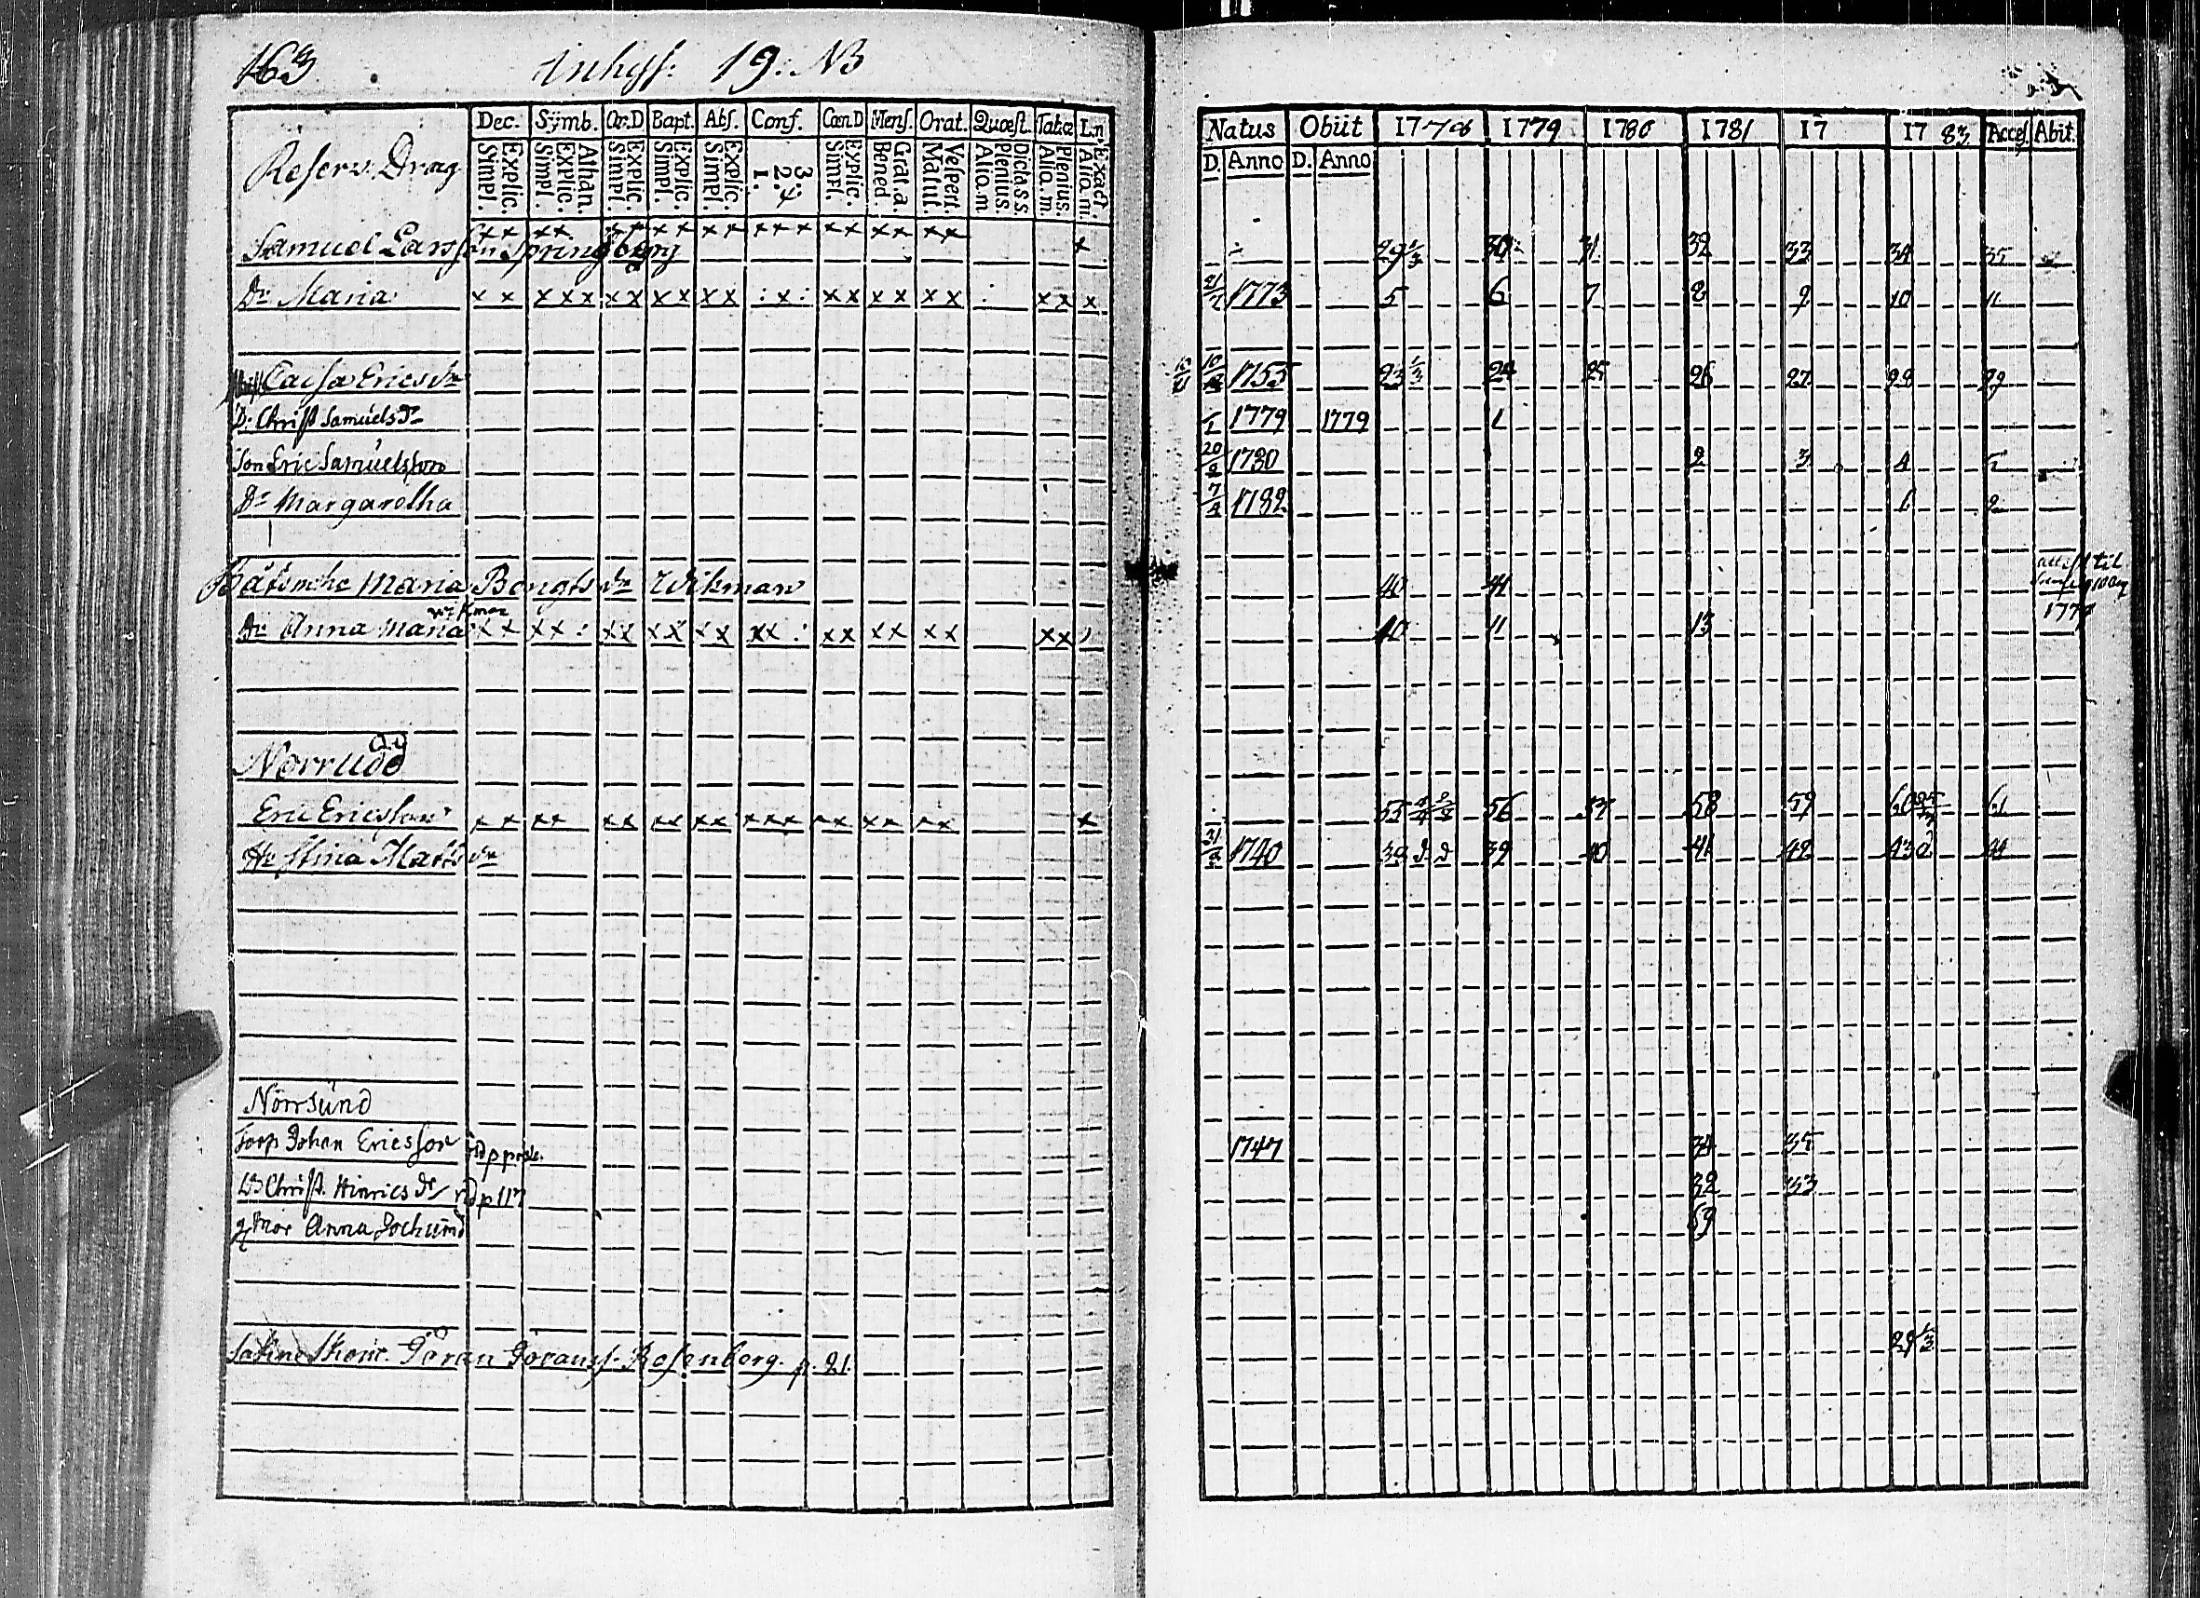 163 Inhys: 19. NB
Dec. Symb. Or.D Bapt. Abs. Conf. Cœn.D Mens. Orat. Quæst. Tab.œ
Reserv. Drag
Simpl. Explic. Simpl. Explic. Athan. Simpl. Explic. Simpl. Explic. Simpl. Explic. 1. 2. 3. 4 Simpl. Explic. Bened. Grat. a. Matut. Vespert. Alio. m Plenius. Dicta S.S. Alio. m. Plenius. Alio m. Exact.
Samuel Larsson Springberg
Dr Maria
Cajsa Ericsdr
Dr Christ Samuelsdr
Son Eric Samuelsson
Dr Margaretha
Maria Bengtsdr Wikman
Wikman
Dr Anna Maria
Norrudd
Eric Ericsson
Hu Stina Mattsdr
Norrsund
Torp Johan Ericsson
Christ. Hinricsdr p 117
Mor Anna Jochumd
Göran Göranss. Rosenberg. p. 21.
Natus Obiit 1778 1779 1780 1781 17 17 83 Acces. Abit.
D. Anno D. Anno
29 1/3 30 31 32 33 34 35
21/1 1773 5 6 7 8 9 10 11
1755 23 1/3 24 25 26 27 28 29
1779 1779 1
20/2 1780 2 3 4 5
7/4 1782 1 2
40 41
1778
10 11 13
55 56 57 58 59 60 61
21/2 1740 38 39 40 41 42 43 44
1747 34 35
32 33
69
29 1/3